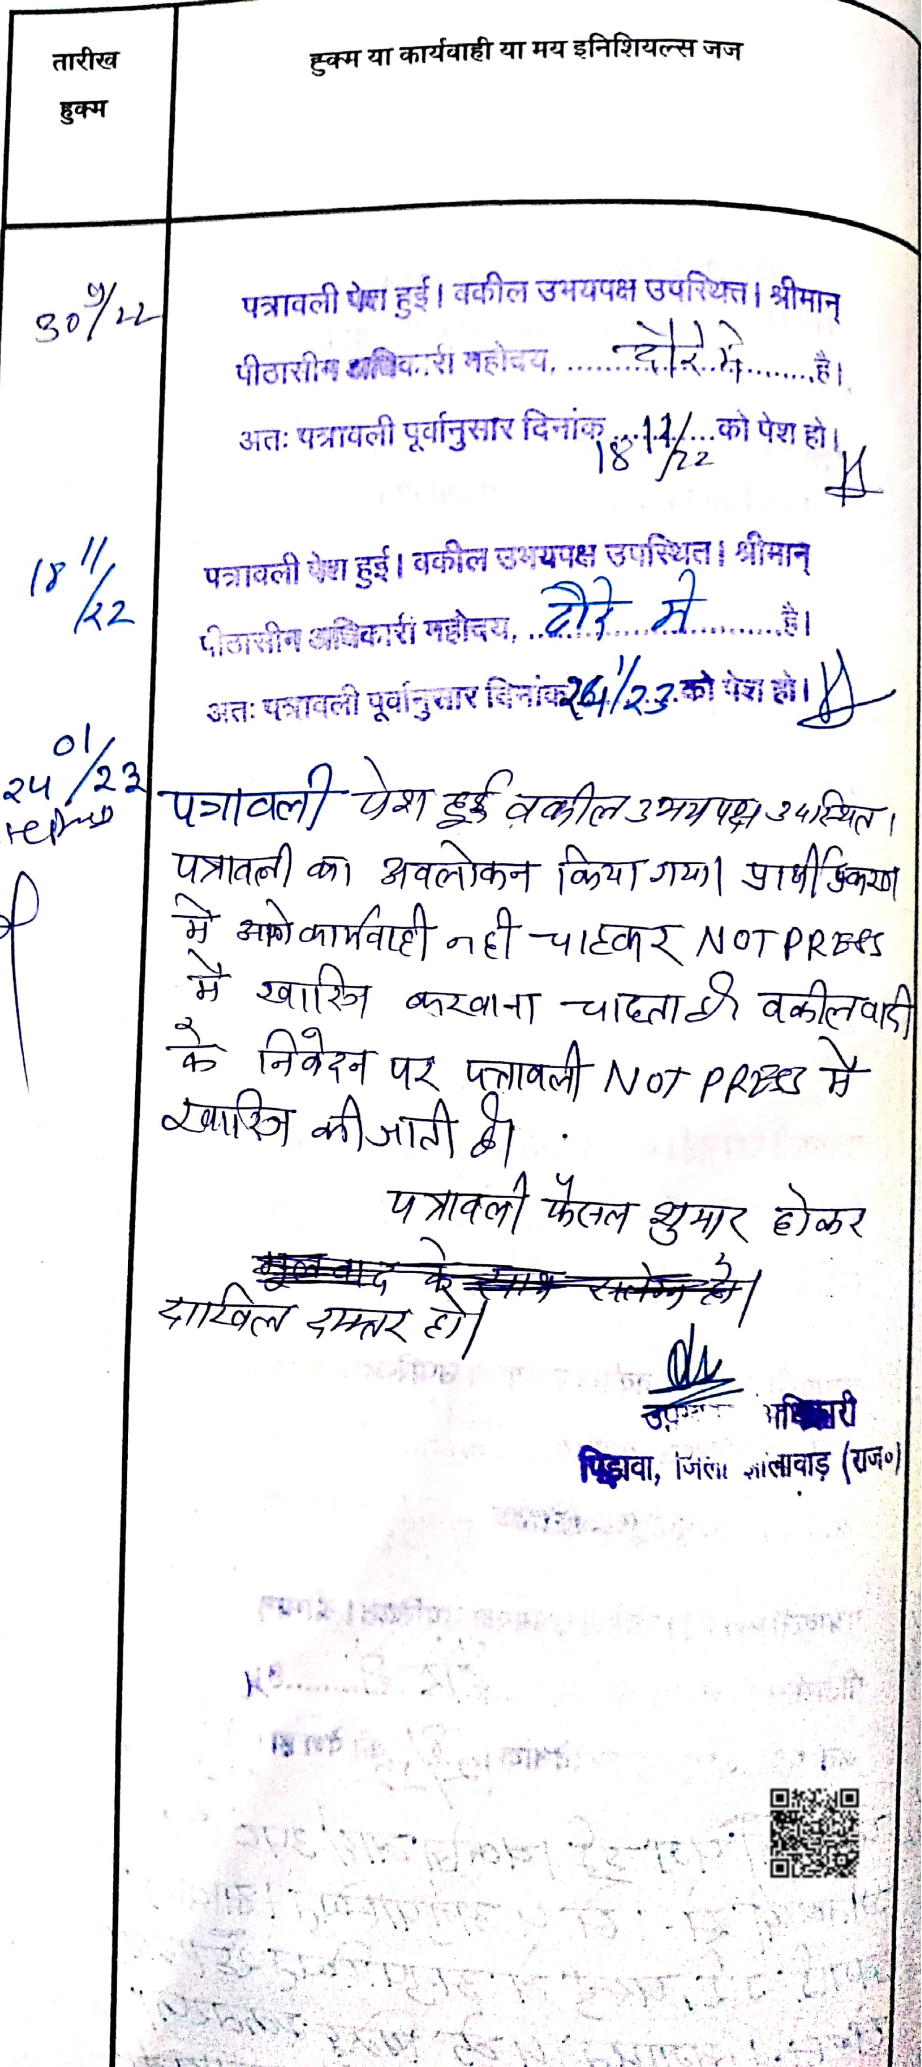 तारीख
हुक्म
हुक्म या कार्यवाही या मय इनिशियल्स जज
30 9/22
पत्रावली पेश हुई। वकील उभयपक्ष उपस्थित। श्रीमान्
पीठासीन अधिकारी महोदय, ......दौरे में......है।
अतः पत्रावली पूर्वानुसार दिनांक 18 11/22 को पेश हो।
18 11/22
पत्रावली पेश हुई। वकील उभयपक्ष उपस्थित। श्रीमान्
पीठासीन अधिकारी महोदय, ...दौरे में...है।
अतः पत्रावली पूर्वानुसार दिनांक 24 1/23 को पेश हो।
24 01/23
पत्रावली पेश हुई वकील उभयपक्ष उपस्थित।
पत्रावली का अवलोकन किया गया। प्रार्थी प्रकरण
में आगे कार्यवाही नही चाहकर NOT PRESS
में खारिज करवाना चाहता है। वकील वादी
के निवेदन पर पत्रावली NOT PRESS में
खारिज की जाती है।
पत्रावली फैसल शुमार होकर
मूल वाद के साथ सलंग्न हो।
दाखिल दफ्तर हो।
अधिकारी
पिड़ावा, जिला झालावाड़ (राज०)